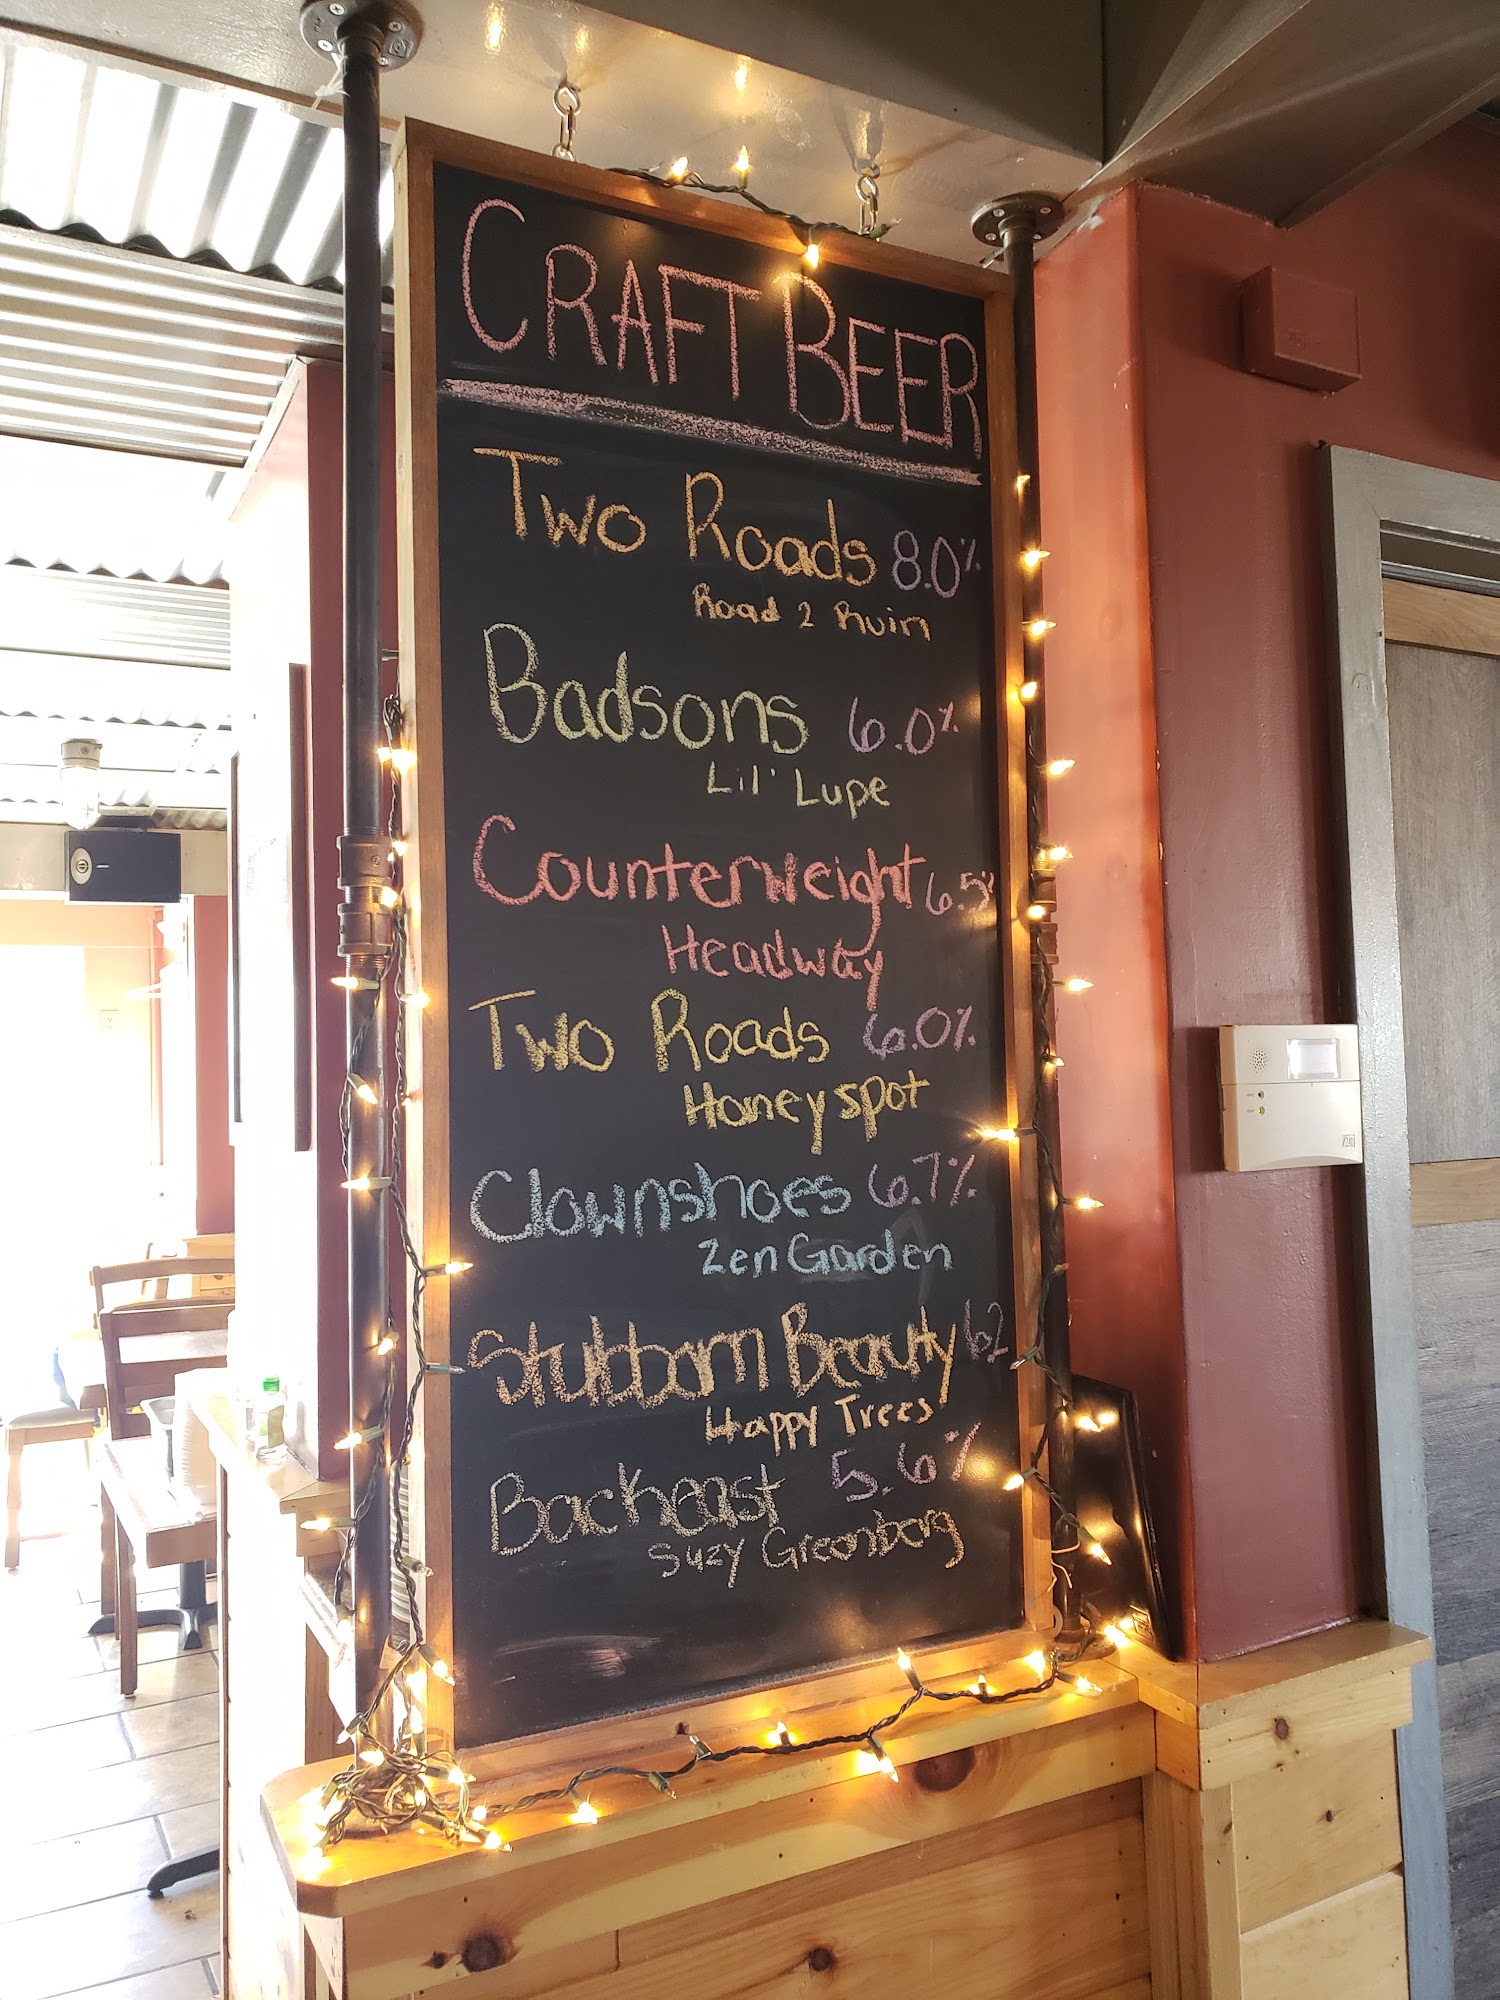 CRAFT BEER
Two Roads 8.0%
Road 2 Ruin
Badsons 6.0%
Lil' Lupe
Counterweight 6.5%
Headway
Two Roads 6.0%
Honeyspot
Clownshoes 6.7%
Zen Garden
Stubborn Beauty 62
Happy Trees
Backeast 5.6%
Suzy Greenberg